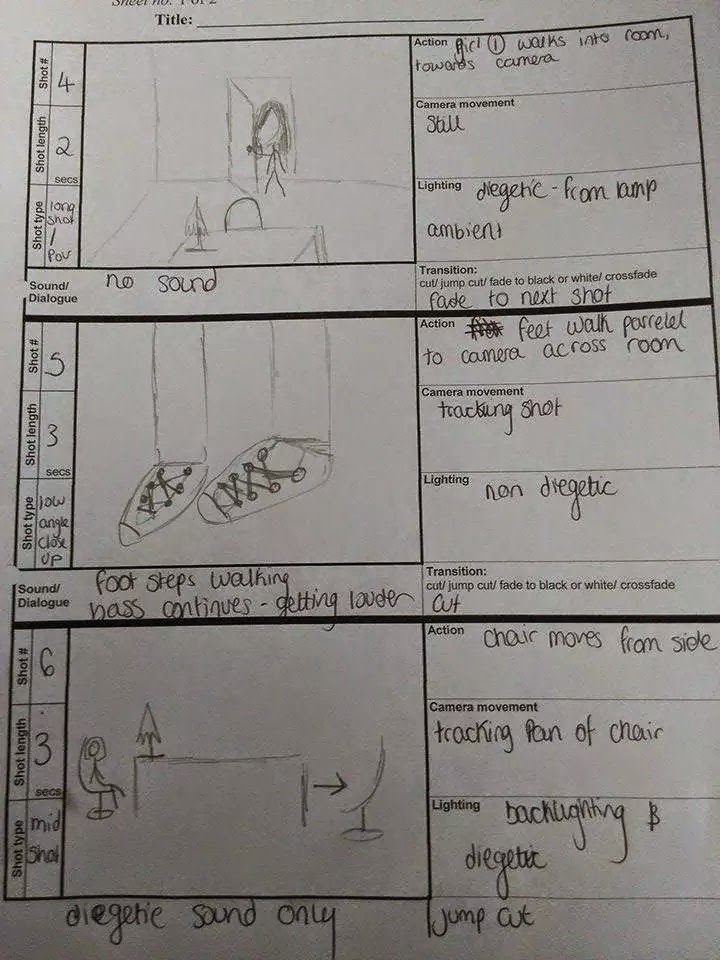 Sheet no. 1 of 2
Title:
Shot #
4
Shot length
2
secs
Shot type
long
shot
/
Pov
Action girl ① walks into room,
towards camera
Camera movement
Still
Lighting diegetic - from lamp
ambient
Sound/
Dialogue
no sound
Transition:
cut/ jump cut/ fade to black or white/ crossfade
fade to next shot
Shot #
5
Shot length
3
secs
Shot type
low
angle
close
up
Action feet walk parrelel
to camera across room
Camera movement
tracking shot
Lighting non diegetic
Sound/
Dialogue
foot steps walking
bass continues - getting louder
Transition:
cut/ jump cut/ fade to black or white/ crossfade
cut
Shot #
6
Shot length
3
secs
Shot type
mid
shot
Action chair moves from side
Camera movement
tracking pan of chair
Lighting backlighting &
diegetic
diegetic sound only
jump cut